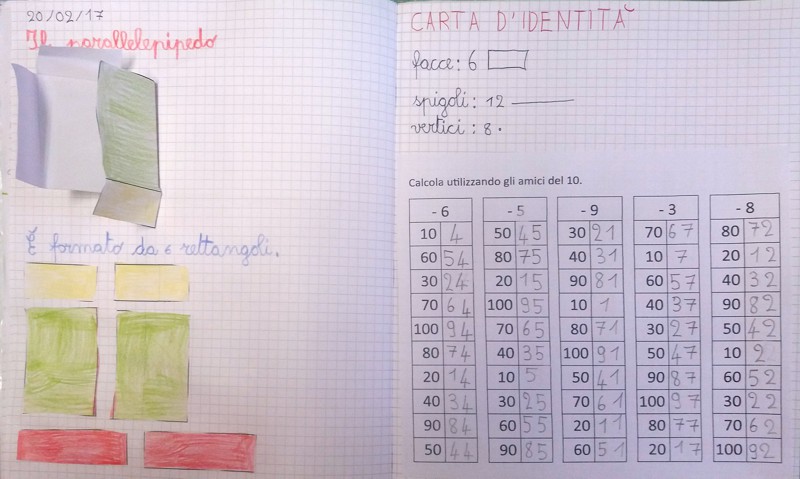 20/02/17
Il parallelepipedo
È formato da 6 rettangoli.
CARTA D'IDENTITÀ
facce: 6
spigoli: 12
vertici: 8.
Calcola utilizzando gli amici del 10.
- 6 - 5 - 9 - 3 - 8
10 4 50 45 30 21 70 67 80 72
60 54 80 75 40 31 10 7 20 12
30 24 20 15 90 81 60 57 40 32
70 64 100 95 10 1 40 37 90 82
100 94 70 65 80 71 30 27 50 42
80 74 40 35 100 91 50 47 10 2
20 14 10 5 50 41 90 87 60 52
40 34 30 25 70 61 100 97 30 22
90 84 60 55 20 11 80 77 70 62
50 44 90 85 60 51 20 17 100 92